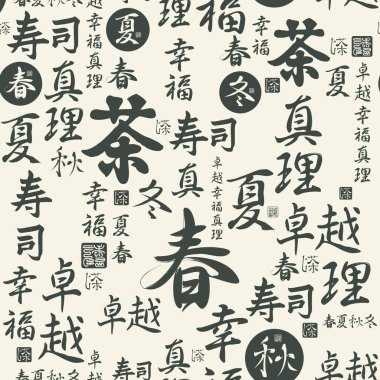 福
茶
寿司
夏
幸福
卓越幸福真理
春
真理
春
冬
真理
夏
秋
茶
寿司
真
卓越幸福真理
幸福
冬
夏春
夏
卓越
寿司
春
春
理
卓越
幸福
寿司
春夏秋冬
幸福
真理
秋
卓越
春夏秋冬